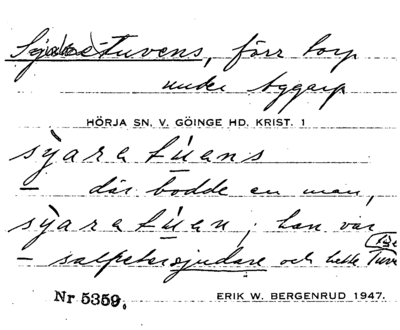 tuvens, förr torp
under Aggarp
HÖRJA SN. V. GÖINGE HD. KRIST. 1
sỳaratúans
— där bodde en man,
sỳaratúan; han var
— salpetersjudare och hette Tuve
Nr 5359. ERIK W. BERGENRUD 1947.